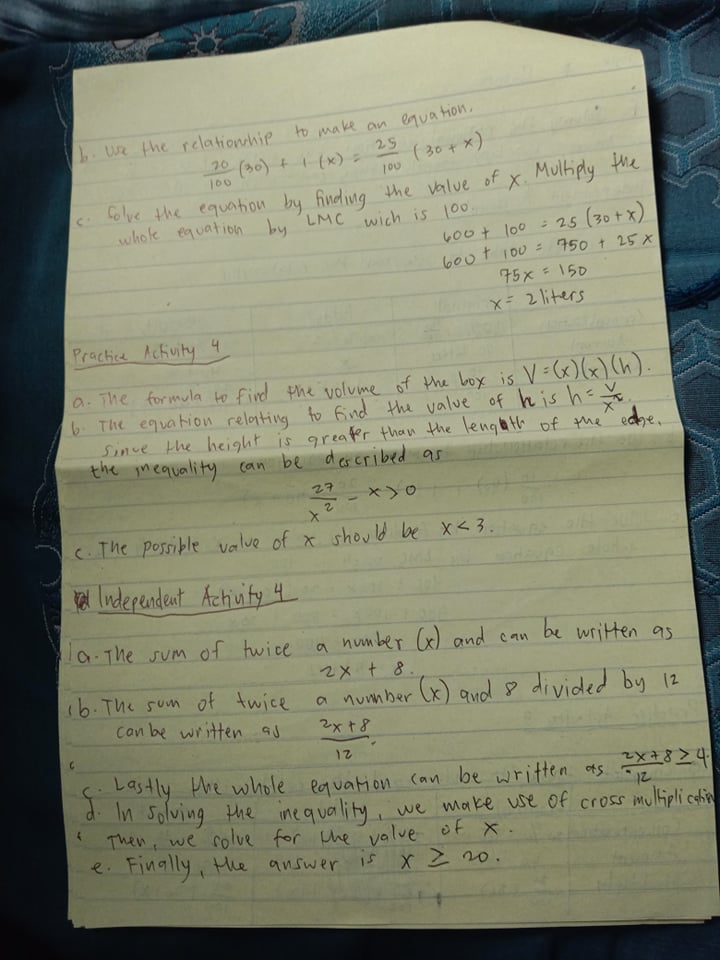 b. Use the relationship to make an equation.
20/100 (30) + 1 (x) = 25/100 (30 + x)
c. Solve the equation by finding the value of x. Multiply the
whole equation by LMC wich is 100.
600 + 100 = 25 (30 + x)
600 + 100 = 750 + 25 x
75x = 150
x = 2 liters
Practice Activity 4
a. The formula to find the volume of the box is V = (x)(x)(h).
b. The equation relating to find the value of h is h = V/x².
Since the height is greater than the length of the edge,
the inequality can be described as
27/x² - x > 0
c. The possible value of x should be x < 3.
Independent Activity 4
a. The sum of twice a number (x) and can be written as
2x + 8.
b. The sum of twice a number (x) and 8 divided by 12
can be written as 2x+8/12.
c. Lastly the whole equation can be written as 2x+8/12 ≥ 4.
d. In solving the inequality, we make use of cross multiplication
Then, we solve for the value of x.
e. Finally, the answer is x ≥ 20.